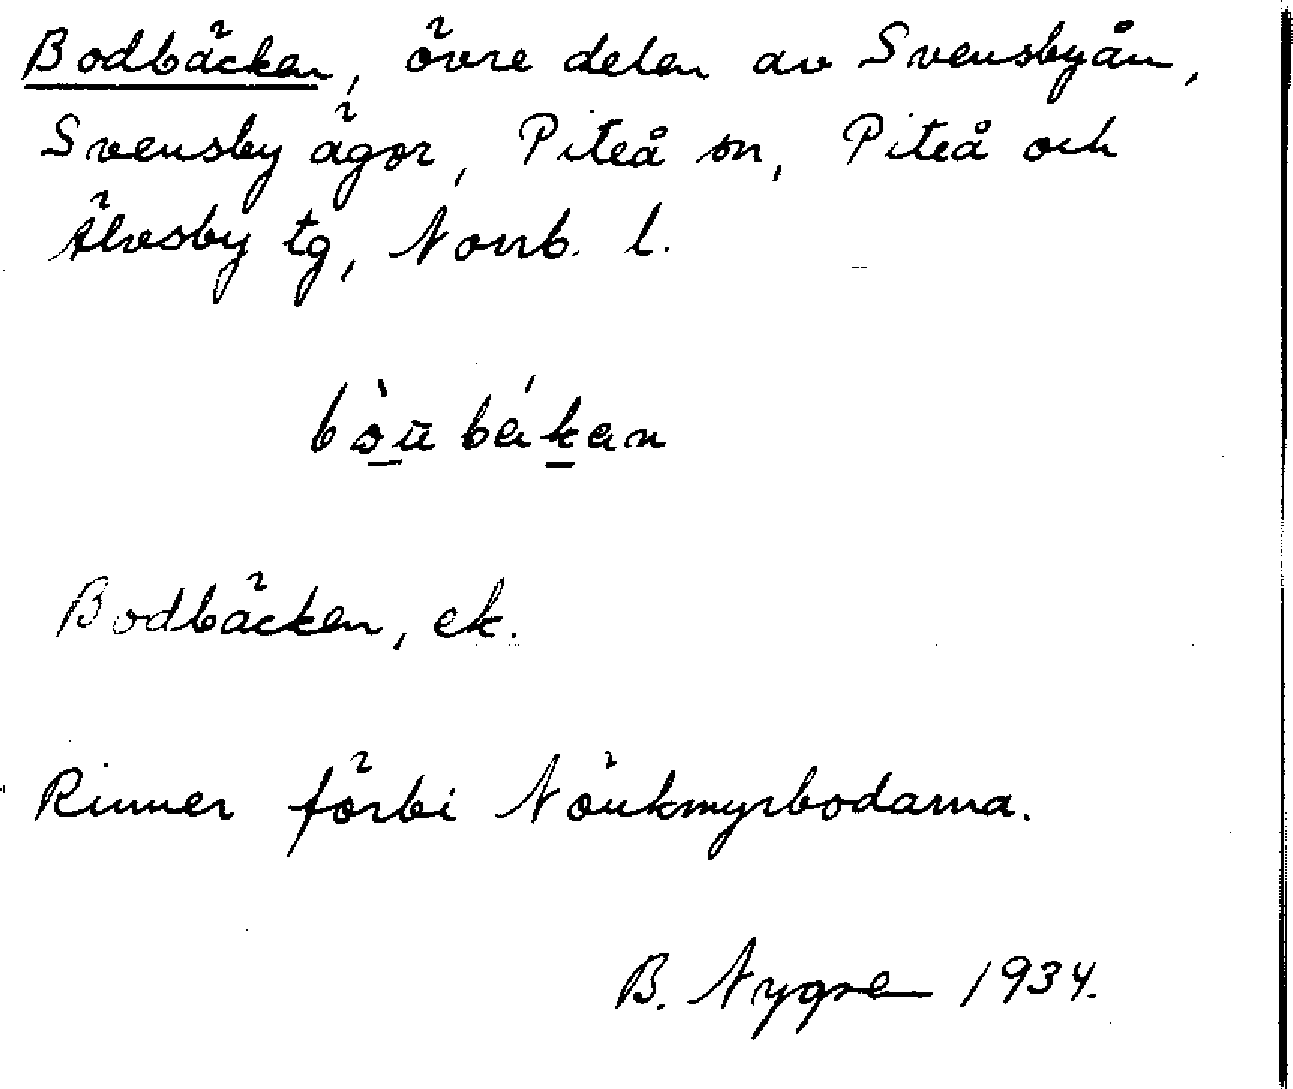 Bodbäcken, övre delen av Svensbyån,
Svensby ägor, Piteå sn, Piteå och
Älvsby tg, Norrb. l.
Bodbäcken, ek.
Rinner förbi
B. Nygren 1934.